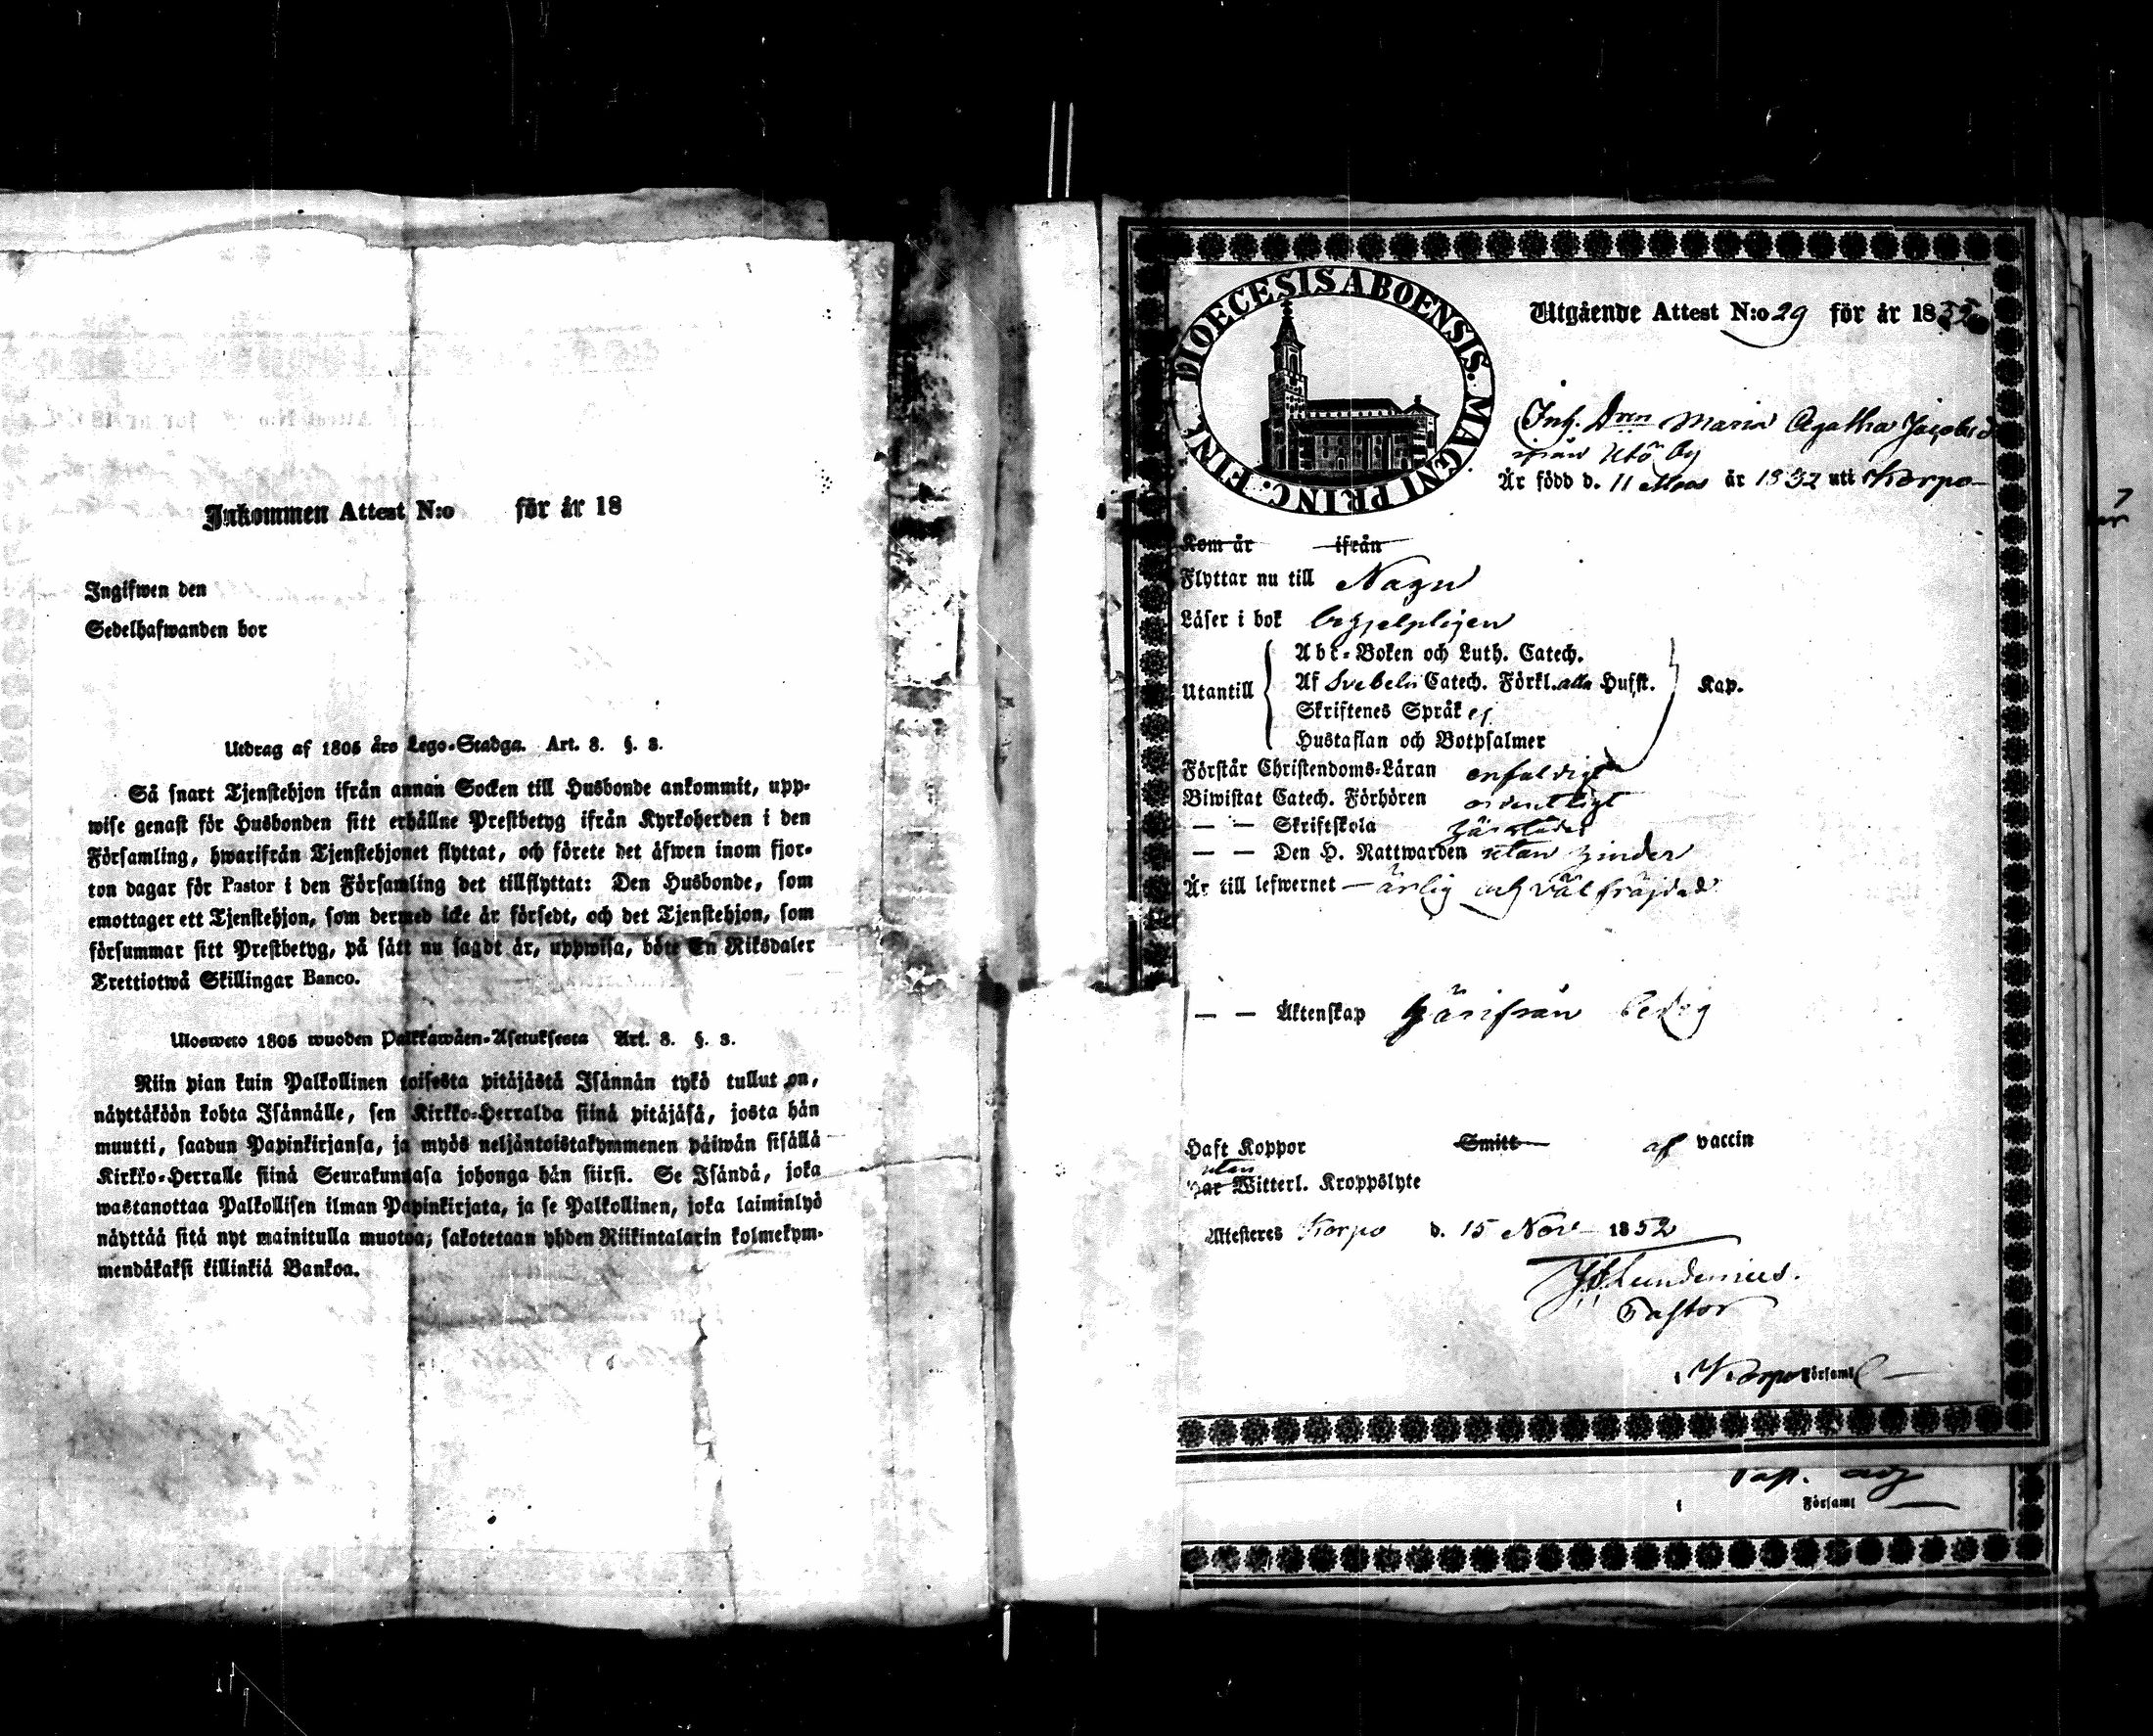 Inkommen Attest N:o för år 18
Ingifwen den
Sedelhafwanden bor
Utdrag af 1805 års Lego-Stadga. Art. 3. §. 3.
Så snart Tjenstehjon ifrån annan Socken till Husbonde ankommit, upp-
wise genast för Husbonden sitt erhållne Prestbetyg ifrån Kyrkoherden i den
Församling, hwarifrån Tjenstehjonet flyttat, och förete det äfwen inom fjor-
ton dagar för Pastor i den Församling det tillflyttat: Den Husbonde, som
emottager ett Tjenstehjon, som dermed icke är försedt, och det Tjenstehjon, som
försummar sitt Prestbetyg, på sätt nu sagdt är, uppwisa, böte En Riksdaler
Trettiotwå Skillingar Banco.
Ulosweto 1805 wuoden Palkkawäen-Asetuksesta Art. 3. §. 3.
Niin pian kuin Palkollinen toisesta pitäjästä Isännän tykö tullut on,
näyttäköön kohta Isännälle, sen Kirkko-Herralda siinä pitäjäsä, josta hän
muutti, saadun Papinkirjansa, ja myös neljäntoistakymmenen päiwän sisällä
Kirkko-Herralle siinä Seurakunnasa johonga hän siirsi. Se Isändä, joka
wastanottaa Palkollisen ilman Papinkirjata, ja se Palkollinen, joka laiminlyö
näyttää sitä nyt mainitulla muotoa, sakotetaan yhden Riikintalarin kolmekym-
mendäkaksi killinkiä Bankoa.
DIOECESIS ABOENSIS. MAGNI PRINC. FINL.
Utgående Attest N:o 29 för år 1852
Inh. Dren Maria Agatha Jacobsd
ifrån Utö By
Är född d. 11 Mars år 1832 uti Korpo
Kom år ifrån
Flyttar nu till Nagu
Läser i bok begripeligen
Utantill
Abc-Boken och Luth. Catech.
Af Svebelii Catech. Förkl. alla Hufst. Kap.
Skriftenes Språk ej
Hustaflan och Botpsalmer
Förstår Christendoms-Läran enfaldigt
Biwistat Catech. Förhören ordentligt
— — Skriftskola härstädes
— — Den H. Nattwarden utan hinder
Är till lefwernet — ärlig och välfräjdad
— — Äktenskap härifrån ledig
Haft Koppor Smitt af vaccin
utan
har Witterl. Kroppslyte
Attesteres Korpo d. 15 Nov 1852
Lundenius.
Pastor
i Korpo Församl
Past. adj
i Församl